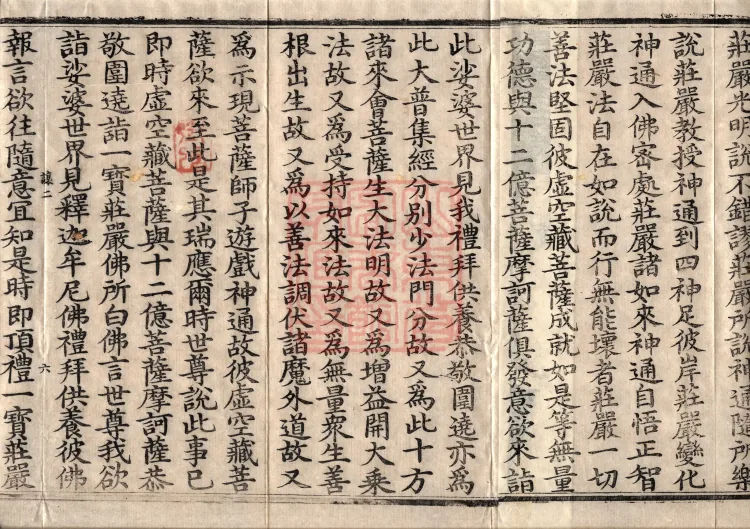 莊嚴光明說不錯謬莊嚴所說神通隨所樂
說莊嚴教授神通到四神足彼岸莊嚴變化
神通入佛密處莊嚴諸如來神通自悟正智
莊嚴法自在如說而行無能壞者莊嚴一切
善法堅固彼虛空藏菩薩成就如是等無量
功德與十二億菩薩摩訶薩俱發意欲來詣
此娑婆世界見我禮拜供養恭敬圍遶亦為
此大普集經分別少法門分故又為此十方
諸來會菩薩生大法明故又為增益開大乘
法故又為受持如來法故又為無量眾生善
根出生故又為以善法調伏諸魔外道故又
為示現菩薩師子遊戲神通故彼虛空藏菩
薩欲來至此是其瑞應爾時世尊說此事已
即時虛空藏菩薩與十二億菩薩摩訶薩恭
敬圍遶詣一寶莊嚴佛所白佛言世尊我欲
詣娑婆世界見釋迦牟尼佛禮拜供養彼佛
讓二 六
報言欲往隨意宜知是時即頂禮一寶莊嚴